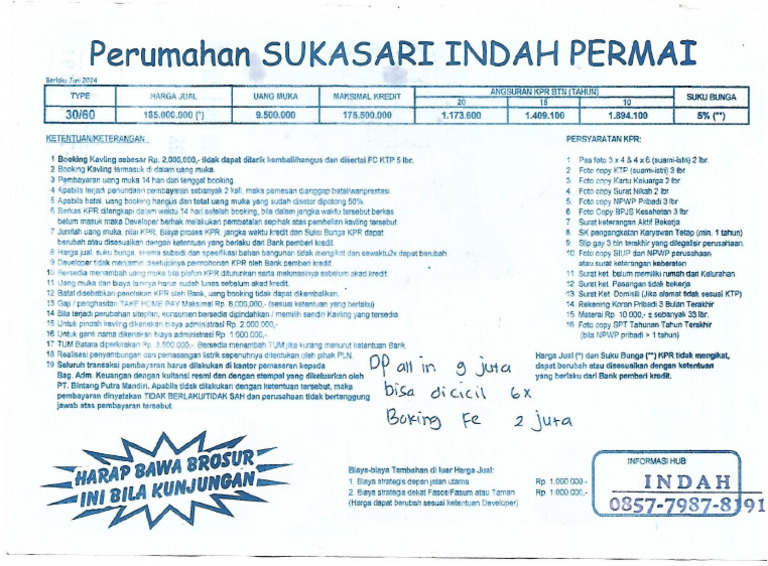 Perumahan SUKASARI INDAH PERMAI
Berlaku Juni 2024
TYPE HARGA JUAL UANG MUKA MAKSIMAL KREDIT ANGSURAN KPR BTN (TAHUN) SUKU BUNGA
20 15 10
30/60 185.000.000 (*) 9.500.000 175.500.000 1.173.600 1.409.100 1.894.100 5% (**)
KETENTUAN/KETERANGAN :
1 Booking Kavling sebesar Rp. 2,000,000,- tidak dapat ditarik kembali/hangus dan disertai FC KTP 5 lbr.
2 Booking Kavling termasuk di dalam uang muka.
3 Pembayaran uang muka 14 hari dari tanggal booking
4 Apabila terjadi penundaan pembayaran sebanyak 2 kali, maka pemesan dianggap batal/wanprestasi
5 Apabila batal, uang booking hangus dan total uang muka yang sudah disetor dipotong 50%.
6 Berkas KPR dilengkapi dalam waktu 14 hari setelah booking, bila dalam jangka waktu tersebut berkas
belum masuk maka Developer berhak melakukan pembatalan sepihak atas pembelian kavling tersebut
7 Jumlah uang muka, nilai KPR, Biaya proses KPR, jangka waktu kredit dan Suku Bunga KPR dapat
berubah atau disesuaikan dengan ketentuan yang berlaku dari Bank pemberi kredit
8 Harga jual, suku bunga, skema subsidi dan spesifikasi bahan bangunan tidak mengikat dan sewaktu2x dapat berubah
9 Developer tidak menjamin disetujuinya permohonan KPR oleh Bank pemberi kredit.
10 Bersedia menambah uang muka bila plafon KPR diturunkan serta melunasinya sebelum akad kredit.
11 Uang muka dan biaya lainnya harus sudah lunas sebelum akad kredit.
12 Batal disebabkan penolakan KPR oleh Bank, uang booking tidak dapat dikembalikan.
13 Gaji / penghasilan TAKE HOME PAY Maksimal Rp. 8,000,000,- (sesuai ketentuan yang berlaku)
14 Bila terjadi perubahan siteplan, konsumen bersedia dipindahkan / memilih sendiri Kavling yang tersedia
15 Untuk pindah kavling dikenakan biaya administrasi Rp 2.000.000,-
16 Untuk ganti nama dikenakan biaya administrasi Rp 1.000.000,-
17 TUM Batara diperkirakan Rp. 3.500.000,- Bersedia menambah TUM jika kurang menurut ketentuan Bank
18 Realisasi penyambungan dan pemasangan listrik sepenuhnya ditentukan oleh pihak PLN.
19 Seluruh transaksi pembayaran harus dilakukan di kantor pemasaran kepada
Bag. Adm. Keuangan dengan kuitansi resmi dan dengan stempel yang dikeluarkan oleh
PT. Bintang Putra Mandiri. Apabila tidak dilakukan dengan ketentuan tersebut, maka
pembayaran dinyatakan TIDAK BERLAKU/TIDAK SAH dan perusahaan tidak bertanggung
jawab atas pembayaran tersebut.
PERSYARATAN KPR:
1 Pas foto 3 x 4 & 4 x 6 (suami-istri) 2 lbr.
2 Foto copy KTP (suami-istri) 3 lbr
3 Foto copy Kartu Keluarga 2 lbr
4 Foto copy Surat Nikah 2 lbr
5 Foto copy NPWP Pribadi 3 lbr
6 Foto Copy BPJS Kesehatan 3 lbr
7 Surat keterangan Aktif Bekerja
8 SK pengangkatan Karyawan Tetap (min. 1 tahun)
9 Slip gaji 3 bln terakhir yang dilegalisir perusahaan.
10 Foto copy SIUP dan NPWP perusahaan
atau surat keterangan keberatan
11 Surat ket belum memiliki rumah dari Kelurahan
12 Surat ket. Pasangan tidak bekerja
13 Surat Ket. Domisili (Jika alamat tidak sesuai KTP)
14 Rekening Koran Pribadi 3 Bulan Terakhir
15 Materai Rp 10.000,- ± sebanyak 33 lbr.
16 Foto copy SPT Tahunan Tahun Terakhir
(bila NPWP pribadi > 1 tahun)
Harga Jual (*) dan Suku Bunga (**) KPR tidak mengikat,
dapat berubah atau disesuaikan dengan ketentuan
yang berlaku dari Bank pemberi kredit.
DP all in 9 juta
bisa dicicil 6x
Boking Fe 2 juta
HARAP BAWA BROSUR
INI BILA KUNJUNGAN
Biaya-biaya Tambahan di luar Harga Jual:
1. Biaya strategis depan jalan utama Rp. 1.000.000,-
2. Biaya strategis dekat Fasos/Fasum atau Taman Rp. 1.000.000,-
(Harga dapat berubah sesuai ketentuan Developer)
INFORMASI HUB
INDAH
0857-7987-8191